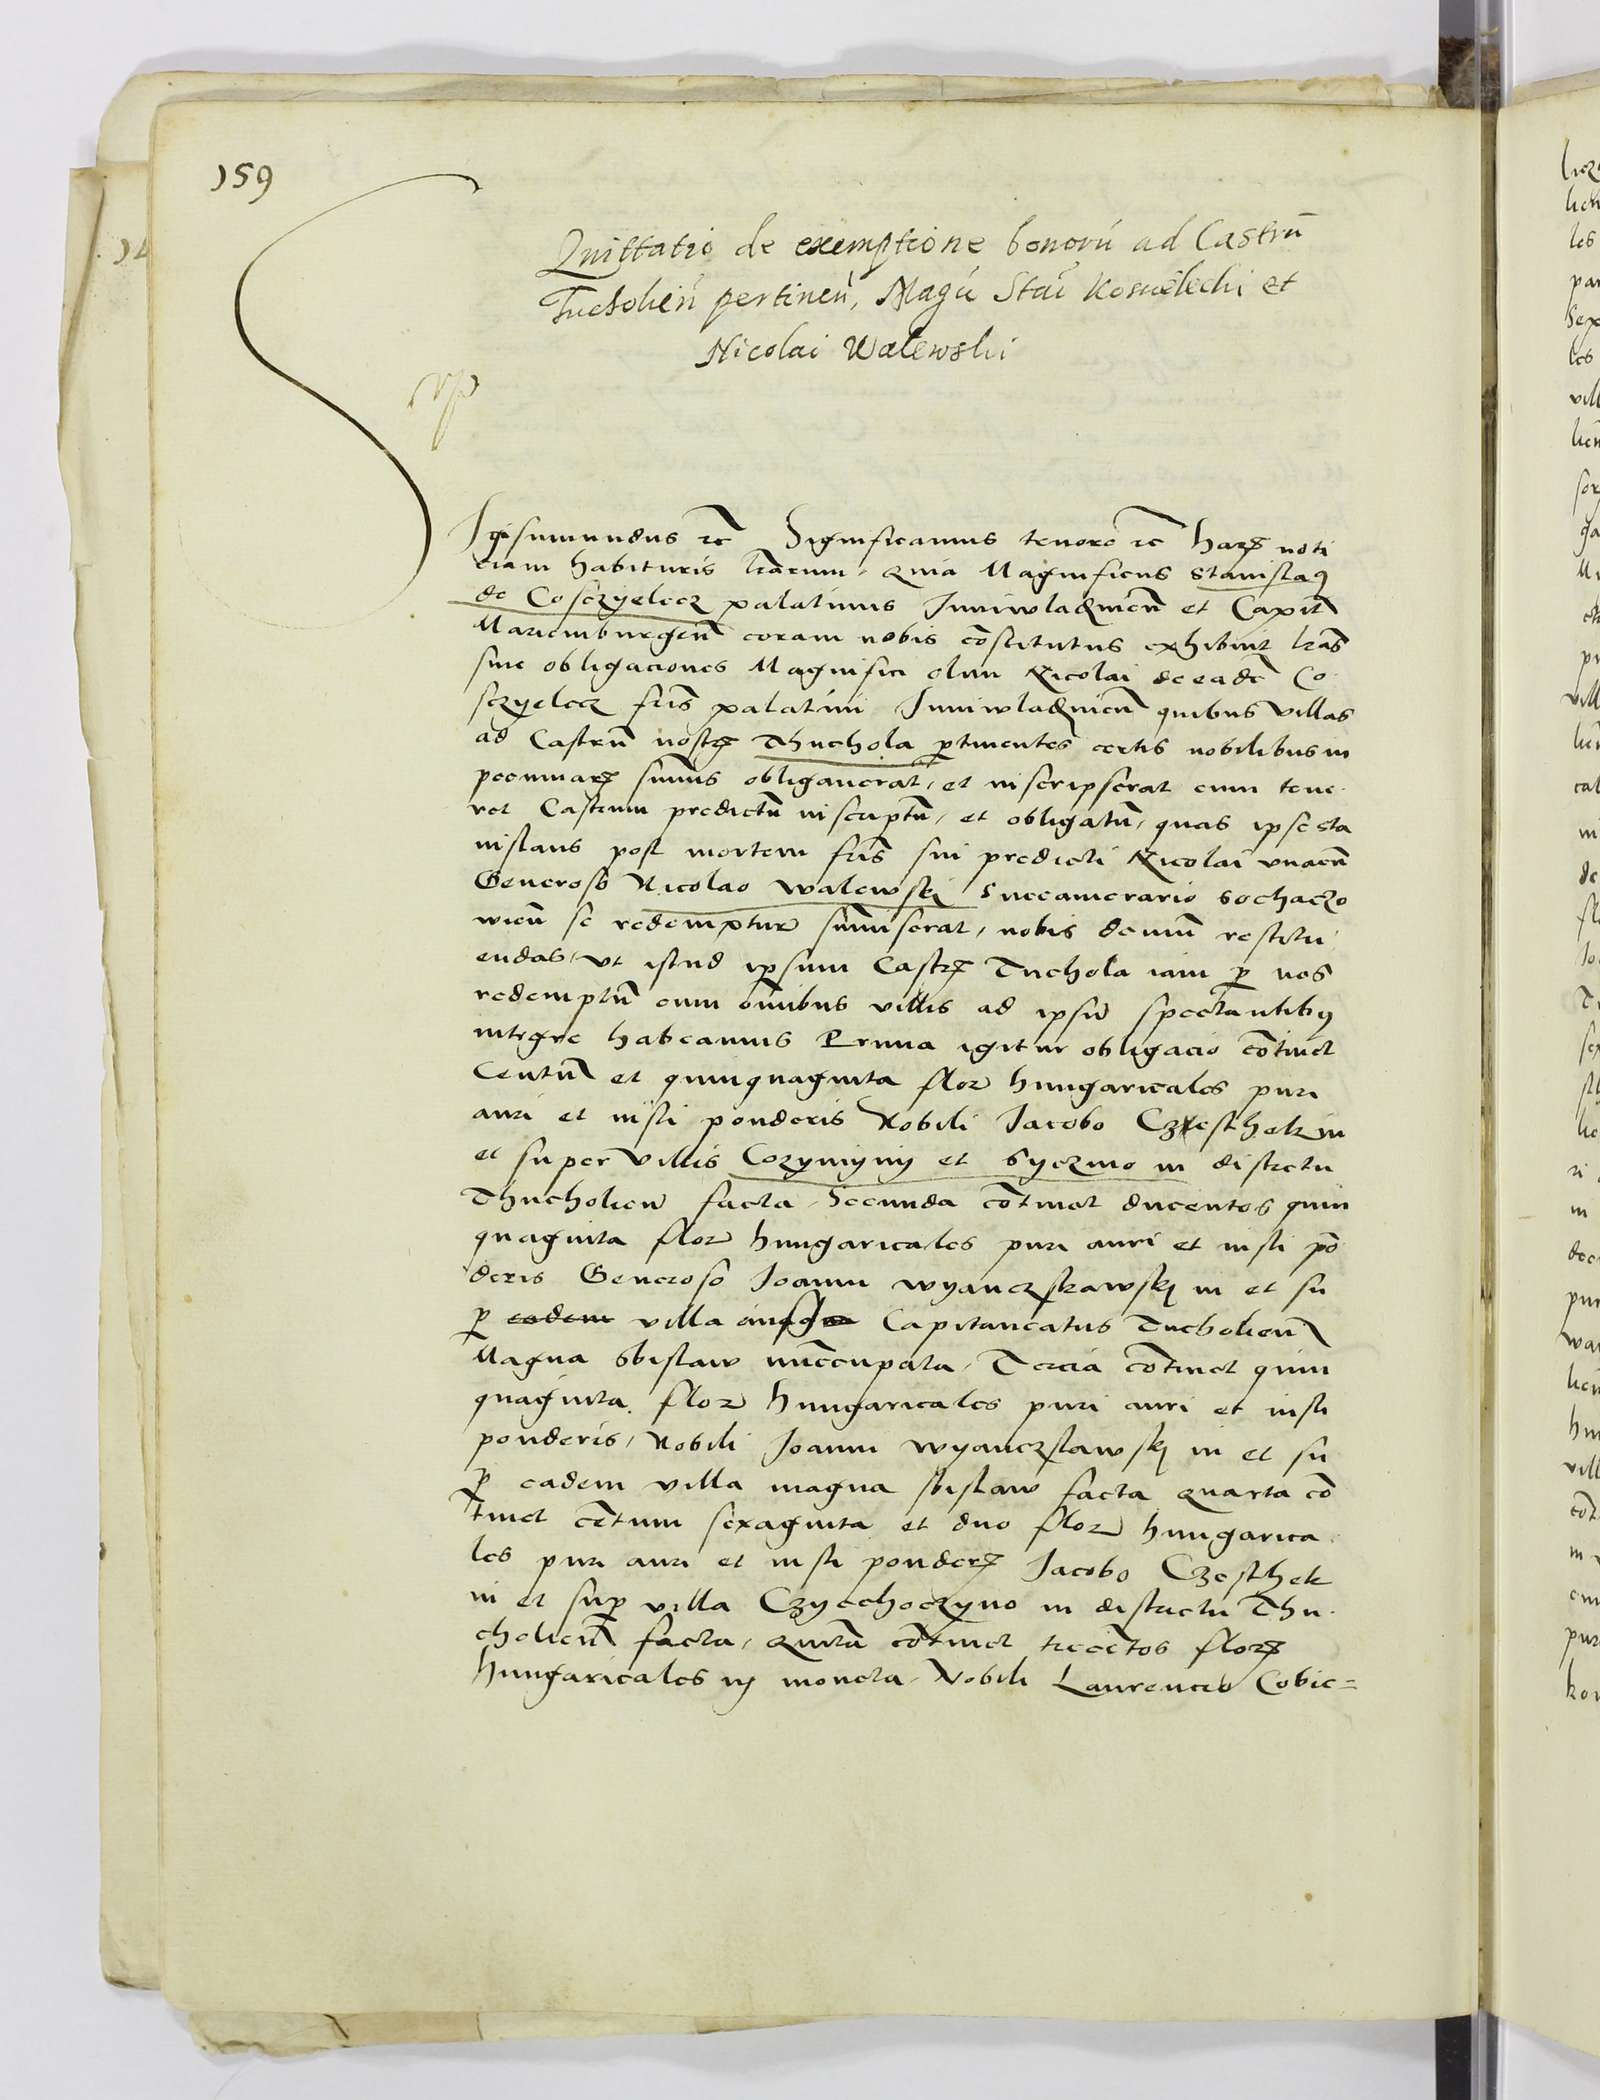 159
Quittatio de exemptione bonorū ad Castrū
Tucholien̄ pertinen̄, Magci Stai Koscielecki et
Nicolai Walewski
Sigismundus etc Significamus tenore etc harȝ noti
ciam habituris l̄rarum, quia Magnificus Stanislaꝯ
de Cosczyelecz palatinus Juniwladislauien̄ et Capit̄
Mariemburgen̄ coram nobis cōstitutus exhibuit l̄ras
siue obligaciones Magnifici olim Nicolai de eadē Co
sczyelecz fr̄is palatini Juniwladislauien̄ quibus villas
ad Castrū nostrȝ Thuchola ꝑtinentes certis nobilibus in
pecuniarȝ sum̄is obligauerat, et inscripserat cum tene
ret Castrum predictū inscriptū, et obligatū, quas ipse sta
nislaus post mortem fr̄is sui predicti Nicolai vnacū
Generoso Nicolao walewskj Succamerario Sochaczo
wien̄ se redempturū sum̄iserat, nobis demum restitu
endas, vt istud ipsum Castrȝ Tuchola iam ꝑ nos
redemptū cum om̄ibus villis ad ipsū spectantibꝯ
integre habeamus Prima igitur obligacio cōtinet
Centū et quinquaginta floz hungaricales puri
auri et iusti ponderis Nobili Jacobo Czesthek in
et super villis Cozyminy et Byczmo in districtu
Thucholien̄ facta, Secunda cōtinet ducentos quin
quaginta floz hungaricales puri auri et iusti pō
deris Generoso Joanni wyanczslawskj in et su
ꝑ eadem villa Capitaneatus Tucholien̄
Magna sbislaw nūccupata, Tercia cōtinet quin
quaginta floz hungaricales puri auri et iusti
ponderis, Nobili Joanni wyanczslawskj in et su
ꝑ eadem villa magna sbislaw facta quarta cō
tinet cētum sexaginta et duo floz hungarica
les puri auri et iusti ponderȝ Jacobo Czesthek
in et suꝑ villa Czyechoczyno in districtu Thu
cholien̄ facta, quīta cōtinet trecētos florȝ
hungaricales in moneta, Nobili Laurencio Cobie=